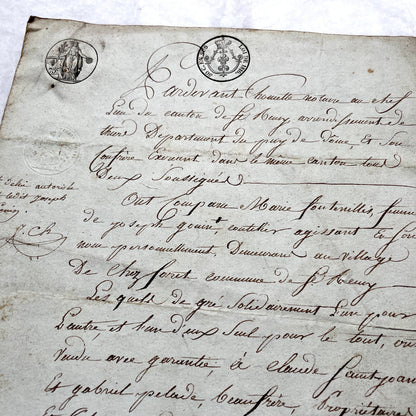 Pardevant Thomitte notaire au chef
Lieu du canton de St Remy arrondissement de
thiers Département du puy de Dome, et Son
Confrère Exerçant dans le même canton tous
Deux Soussignés
Ont Comparu Marie fontenilles, femme
de joseph Gouin, coutelier agissant en son
nom personnellement, Demeurant au village
De Chez foret commune de St Remy
Les quels de gré Solidairement L'un pour
L'autre et L'un d'eux Seul pour le tout, ont
vendu avec garantie à claude Saint joan
Et gabriel pelade, beaufrère, propriétaires
autorisé
joseph